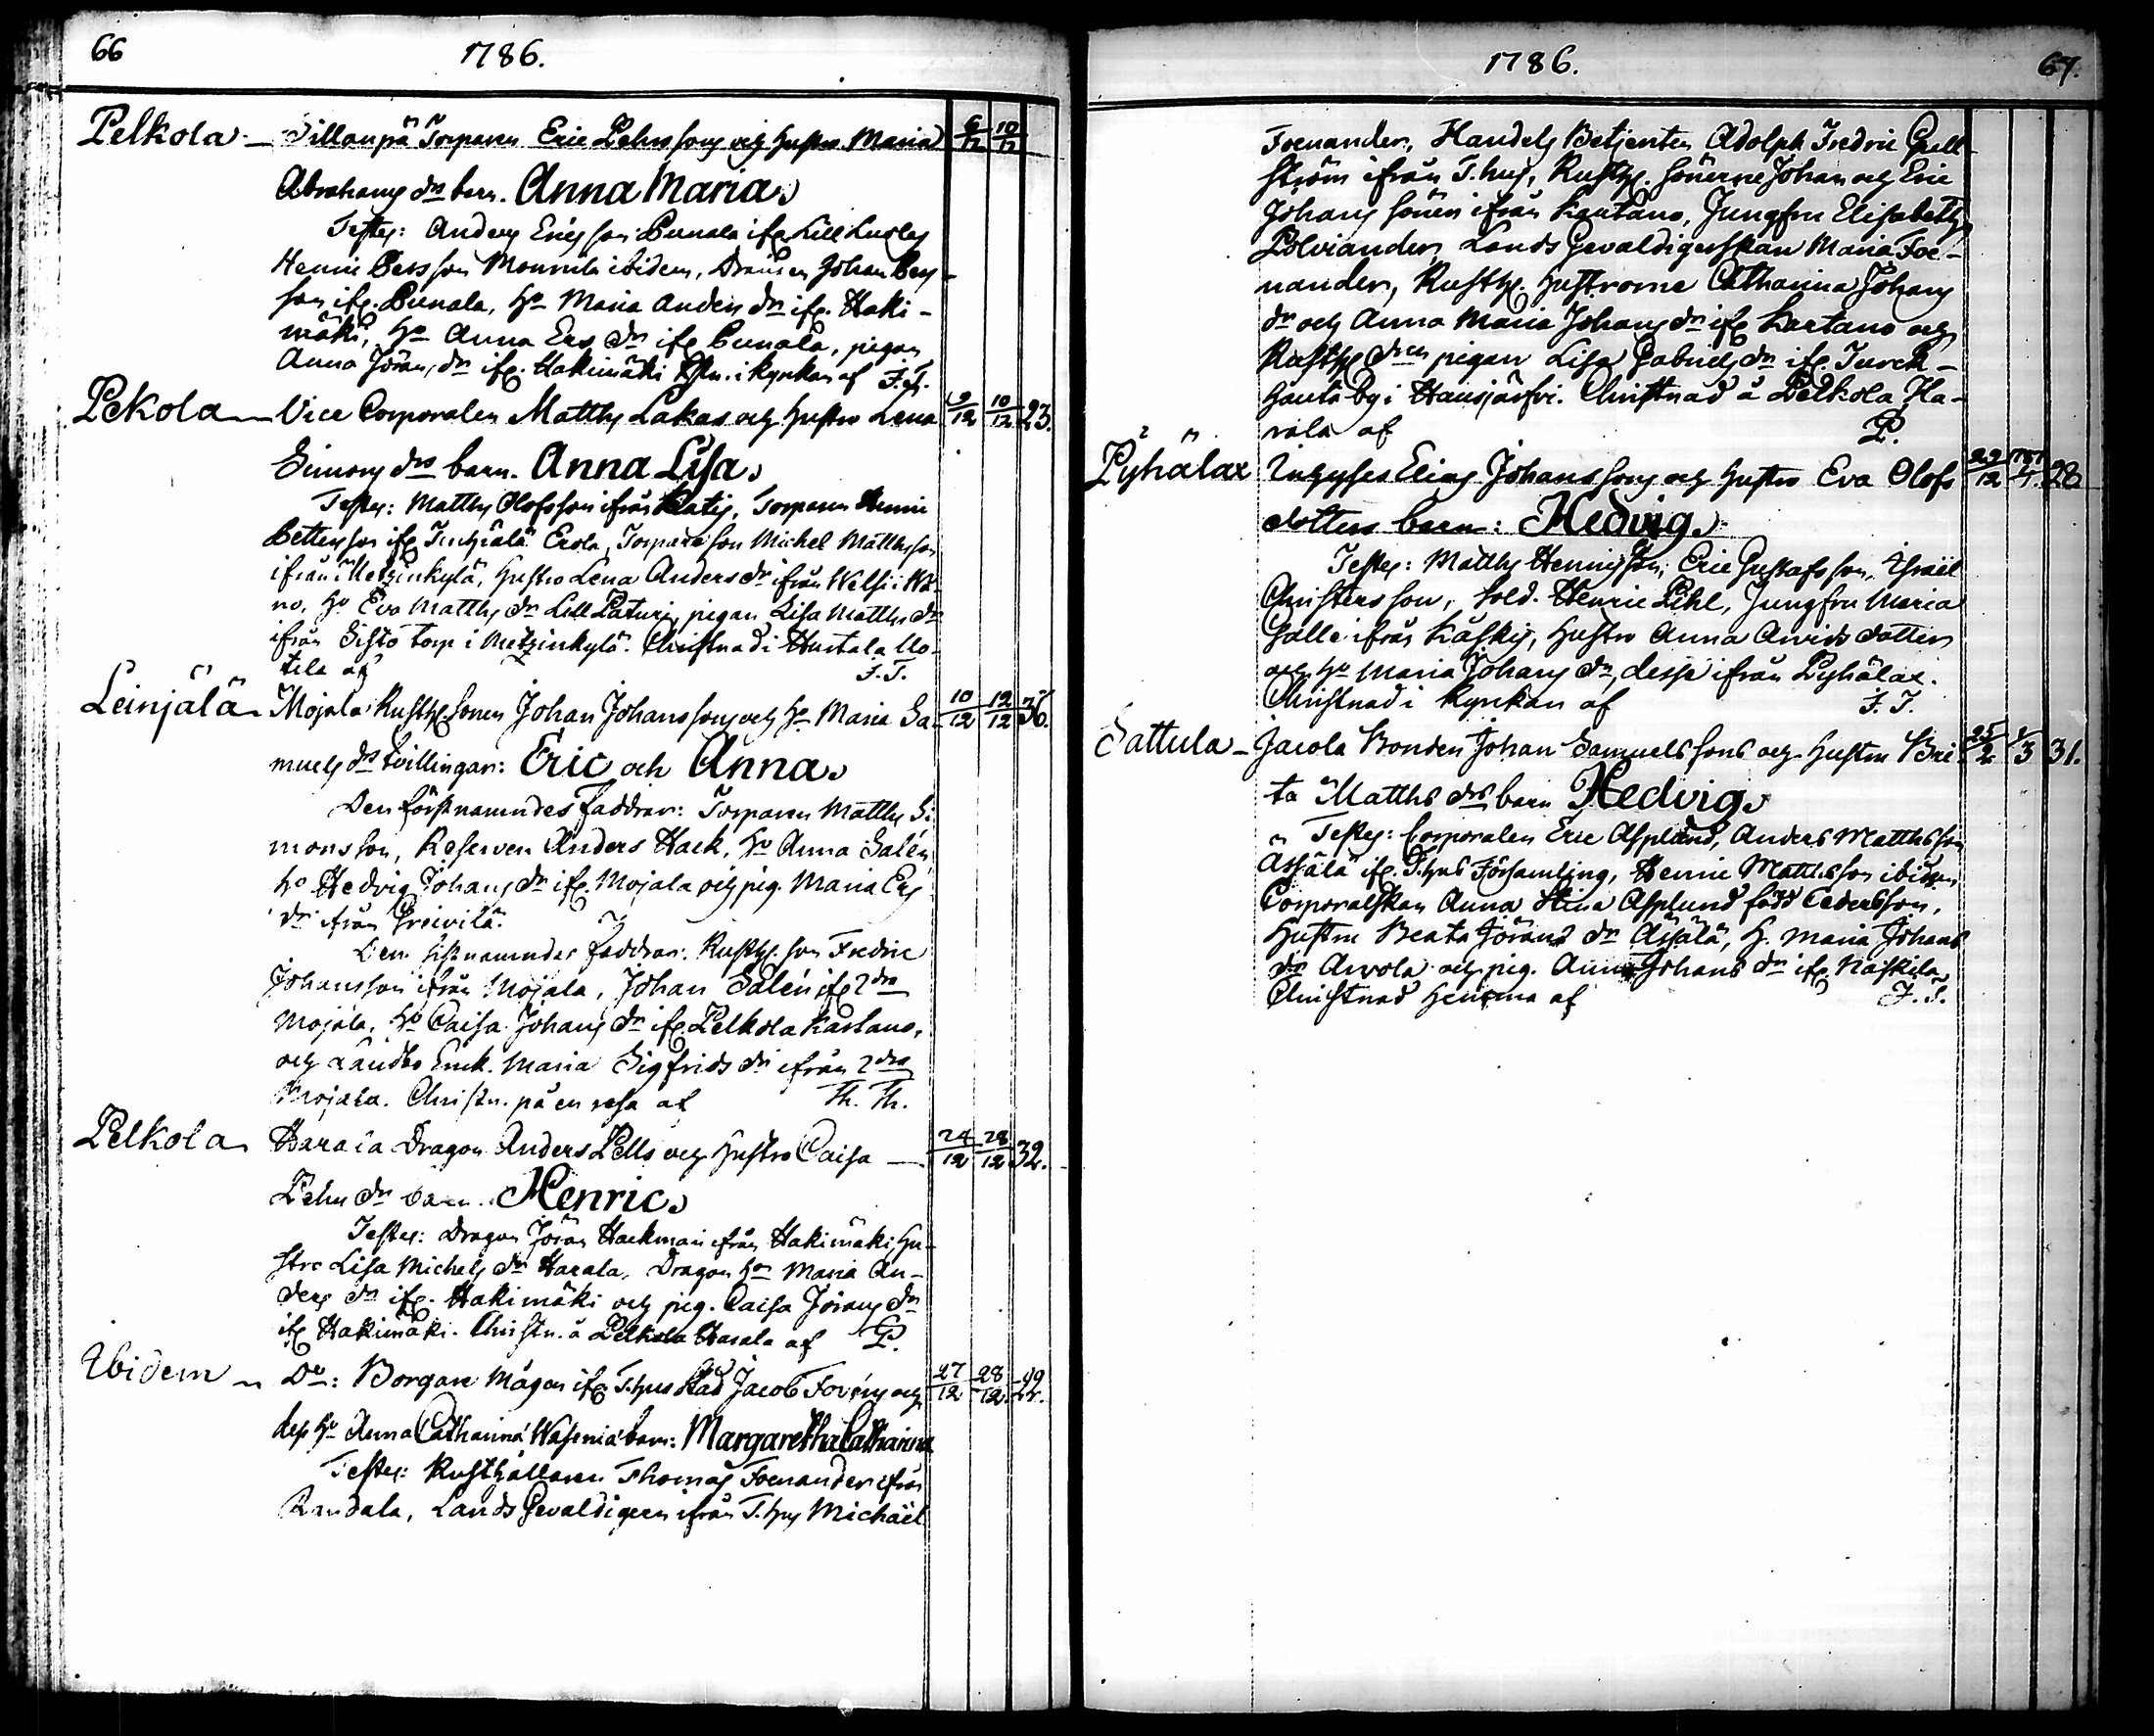 66 1786.
Pelkola Sillanpä Torparen Eric Pehrssons och hustru Maria 6/12 10/12
Abrahams dr barn. Anna Maria
Testes: Anders Ericsson Punala ifr. Lill
Henric Persson ibidem, Drängen Johan
son ifr. Punala, Ho Maria Anders dr ifr. Haki-
mäki, Ho Anna Ers dr ifr Punala, pigan
Anna Jörans dr ifr. Hakimäki Chr. i Kyrkan af F.T.
Pekola Vice Corporalen Matths Lakas och hustru Lena 9/12 10/12 23.
Simons drs barn. Anna Lisa
Testes: Matths Olofsson ifrån, Torparen Henric
ifr Erola, Torpare son Michel Mattsson
ifrån Metzinkylä, hustru Lena Anders dr ifrån
no, Ho Eva Matths dr Lill, pigan Lisa Matths dr
ifrån Sisto torp i Metzinkylä. Christnad i Huntala Uo-
tila af F.T.
Leinjälä Mojala Rusth. sonen Johan Johanssons och Ho Maria Sa- 10/12 12/12 36.
muels drs tvillingar: Eric och Anna
Den förstnamndes faddrar: Torparen Matths Si-
monsson, Reserven Anders Hack, Ho Anna Salén
Ho Hedvig Johans dr ifr. Mojala och pig. Maria Ers
dr ifrån Greivilä.
Den sistnamndes faddrar: Rusth. son Fredric
Johansson ifrån Mojala, Johan Salén ifr 2dra
Mojala, Ho Caisa Johans dr ifr. Pelkola Kartano,
och Landbo Enk. Maria Sigfrids dr ifrån 2dra
Mojala. Christn. på en resa af Th. Th.
Pelkola Harala Dragon Anders Pells och hustru Caisa 24/12 28/12 32.
Pehrs dr barn. Henric
Testes: Dragon Jöran Hackman ifrån Hakimäki, Hu-
stru Lisa Michels dr Harala, Dragon Ho Maria An-
ders dr ifr. Hakimäki och pig. Caisa Jörans dr
ifr Hakimäki. Christn. å Pelkola Harala af P.
Ibidem Do: Borgare Mågen ifr T.hus stad Jacob och 27/12 28/12
dess Ho Anna Catharina Wasenia barn: Margaretha Catharina
Testes: Rusthållaren Thomas Foenander ifrån
Randala, Lands Gevaldigern ifrån T.hus Michäel
1786. 67.
Foenander, Handels Betjenten Adolph Fredric
ström ifrån T.hus, Rusth. sönerne Johan och Eric
Johans söner ifrån Kartano, Jungfru Elisabeth
Polviander, Lands Gevaldigerskan Maria Foe-
nander, Rusth. hustrorne Catharina Johans
dr och Anna Maria Johans dr ifr Kartano och
Rusth. pigan Lisa Gabriels dr ifr. Turck-
hauta By i Hausjärfvi. Christnad å Pelkola Ha-
rala af P.
Pyhälax Inhyses Elias Johanssons och hustru Eva Olofs 22/12 28
dotters barn: Hedvig
Testes: Matths Hennigsson, Eric Gustafsson, Israel
Christersson, Sold. Henric Pihl, Jungfru Maria
Salle ifrån Käskis, Hustru Anna Arvids dotter
och Ho Maria Johans dr, desse ifrån Pyhälax.
Christnad i Kyrkan af F.T.
Sattula Jacola Bonden Johan Samuelssons och hustru Bri- 25/2 1/3 31.
ta Matths drs barn Hedvig
Testes: Corporalen Eric Asplund, Anders Matthsson
Äsjälä ifr. T.hus Församling, Henric Matthsson ibidem
Corporalskan Anna Stina Asplund född Cedersson,
Hustru Beata Jörans dr Äsjälä, H. Maria Johans
dr Arvola och pig. Anna Johans dr ifr
Christnad hemma af F.T.